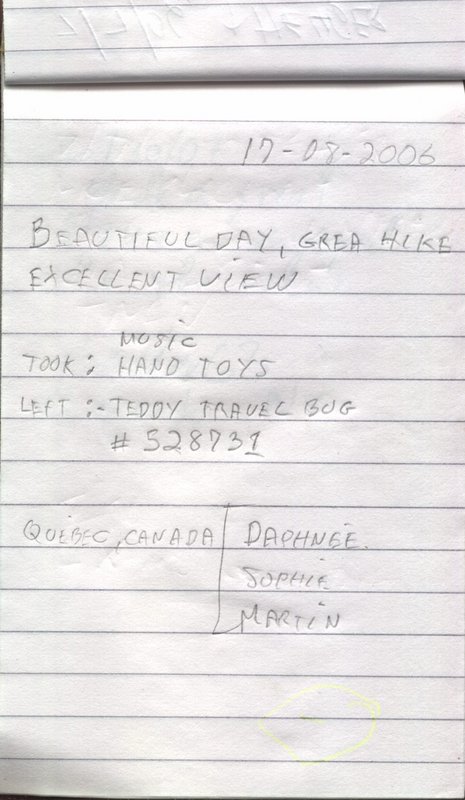 17-08-2006
BEAUTIFUL DAY, GREA HIKE
EXCELLENT VIEW
MUSIC
TOOK: HAND TOYS
LEFT :- TEDDY TRAVEL BUG
# 528731
QUÉBEC, CANADA
DAPHNÉE.
SOPHIE
MARTIN